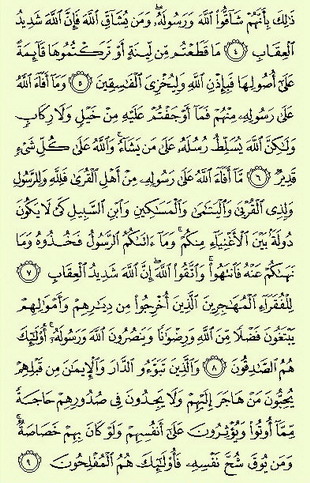 ذَٰلِكَ بِأَنَّهُمْ شَاقُّوا۟ ٱللَّهَ وَرَسُولَهُۥ ۖ وَمَن يُشَآقِّ ٱللَّهَ فَإِنَّ ٱللَّهَ شَدِيدُ
ٱلْعِقَابِ ٤ مَا قَطَعْتُم مِّن لِّينَةٍ أَوْ تَرَكْتُمُوهَا قَآئِمَةً
عَلَىٰٓ أُصُولِهَا فَبِإِذْنِ ٱللَّهِ وَلِيُخْزِىَ ٱلْفَٰسِقِينَ ٥ وَمَآ أَفَآءَ ٱللَّهُ
عَلَىٰ رَسُولِهِۦ مِنْهُمْ فَمَآ أَوْجَفْتُمْ عَلَيْهِ مِنْ خَيْلٍ وَلَا رِكَابٍ
وَلَٰكِنَّ ٱللَّهَ يُسَلِّطُ رُسُلَهُۥ عَلَىٰ مَن يَشَآءُ ۚ وَٱللَّهُ عَلَىٰ كُلِّ شَىْءٍ
قَدِيرٌ ٦ مَّآ أَفَآءَ ٱللَّهُ عَلَىٰ رَسُولِهِۦ مِنْ أَهْلِ ٱلْقُرَىٰ فَلِلَّهِ وَلِلرَّسُولِ
وَلِذِى ٱلْقُرْبَىٰ وَٱلْيَتَٰمَىٰ وَٱلْمَسَٰكِينِ وَٱبْنِ ٱلسَّبِيلِ كَىْ لَا يَكُونَ
دُولَةًۢ بَيْنَ ٱلْأَغْنِيَآءِ مِنكُمْ ۚ وَمَآ ءَاتَىٰكُمُ ٱلرَّسُولُ فَخُذُوهُ وَمَا
نَهَىٰكُمْ عَنْهُ فَٱنتَهُوا۟ ۚ وَٱتَّقُوا۟ ٱللَّهَ ۖ إِنَّ ٱللَّهَ شَدِيدُ ٱلْعِقَابِ ٧
لِلْفُقَرَآءِ ٱلْمُهَٰجِرِينَ ٱلَّذِينَ أُخْرِجُوا۟ مِن دِيَٰرِهِمْ وَأَمْوَٰلِهِمْ
يَبْتَغُونَ فَضْلًا مِّنَ ٱللَّهِ وَرِضْوَٰنًا وَيَنصُرُونَ ٱللَّهَ وَرَسُولَهُۥٓ ۚ أُو۟لَٰٓئِكَ
هُمُ ٱلصَّٰدِقُونَ ٨ وَٱلَّذِينَ تَبَوَّءُو ٱلدَّارَ وَٱلْإِيمَٰنَ مِن قَبْلِهِمْ
يُحِبُّونَ مَنْ هَاجَرَ إِلَيْهِمْ وَلَا يَجِدُونَ فِى صُدُورِهِمْ حَاجَةً
مِّمَّآ أُوتُوا۟ وَيُؤْثِرُونَ عَلَىٰٓ أَنفُسِهِمْ وَلَوْ كَانَ بِهِمْ خَصَاصَةٌ ۚ
وَمَن يُوقَ شُحَّ نَفْسِهِۦ فَأُو۟لَٰٓئِكَ هُمُ ٱلْمُفْلِحُونَ ٩